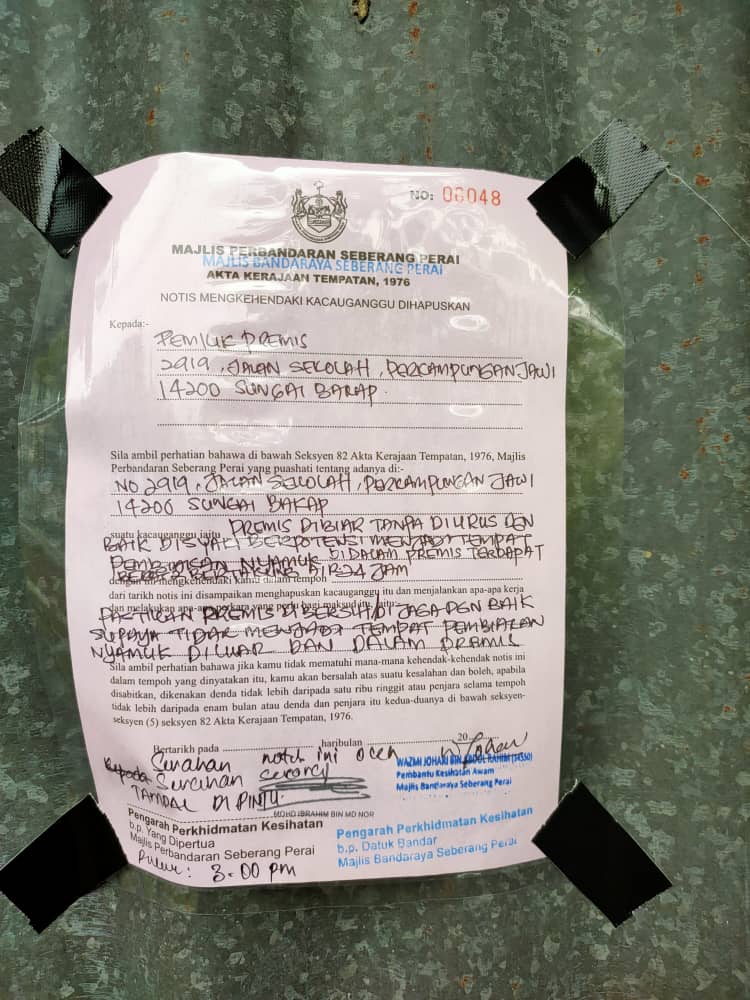 NO: 06048
MAJLIS PERBANDARAN SEBERANG PERAI
MAJLIS BANDARAYA SEBERANG PERAI
AKTA KERAJAAN TEMPATAN, 1976
NOTIS MENGKEHENDAKI KACAUGANGGU DIHAPUSKAN
Kepada:-
PEMILIK PREMIS
2919, JALAN SEKOLAH, PERCAMPUNGAN JAWI
14200 SUNGAI BAKAP.
Sila ambil perhatian bahawa di bawah Seksyen 82 Akta Kerajaan Tempatan, 1976, Majlis
Perbandaran Seberang Perai yang puashati tentang adanya di:-
NO 2919, JALAN SEKOLAH, PERCAMPUNGAN JAWI
14200 SUNGAI BAKAP
suatu kacauganggu iaitu PREMIS DIBIAR TANPA DIURUS DGN
BAIK DISYAKI BERPOTENSI MENJADI TEMPAT
PEMBIAKAN NYAMUK DIDALAM PREMIS TERDAPAT
BERTAKUNG AIR
dengan ini mengkehendaki kamu dalam tempoh 24 JAM
dari tarikh notis ini disampaikan menghapuskan kacauganggu itu dan menjalankan apa-apa kerja
dan melakukan apa-apa perkara yang perlu bagi maksud itu, iaitu:-
PASTIKAN PREMIS DIBERSIH DI JAGA DGN BAIK
SUPAYA TIDAK MENJADI TEMPAT PEMBIAKAN
NYAMUK DILUAR DAN DALAM PREMIS
Sila ambil perhatian bahawa jika kamu tidak mematuhi mana-mana kehendak-kehendak notis ini
dalam tempoh yang dinyatakan itu, kamu akan bersalah atas suatu kesalahan dan boleh, apabila
disabitkan, dikenakan denda tidak lebih daripada satu ribu ringgit atau penjara selama tempoh
tidak lebih daripada enam bulan atau denda dan penjara itu kedua-duanya di bawah seksyen-
seksyen (5) seksyen 82 Akta Kerajaan Tempatan, 1976.
Bertarikh pada haribulan 20
Serahan notis ini oleh
Kepada Serahan
TAMPAL DI PINTU.
WAZMI JOHARI BIN ABDUL RAHIM
Pembantu Kesihatan Awam
Majlis Bandaraya Seberang Perai
MOHD IBRAHIM BIN MD NOR
Pengarah Perkhidmatan Kesihatan
b.p. Yang Dipertua
Majlis Perbandaran Seberang Perai
Pengarah Perkhidmatan Kesihatan
b.p. Datuk Bandar
Majlis Bandaraya Seberang Perai
Pukul: 3.00 pm